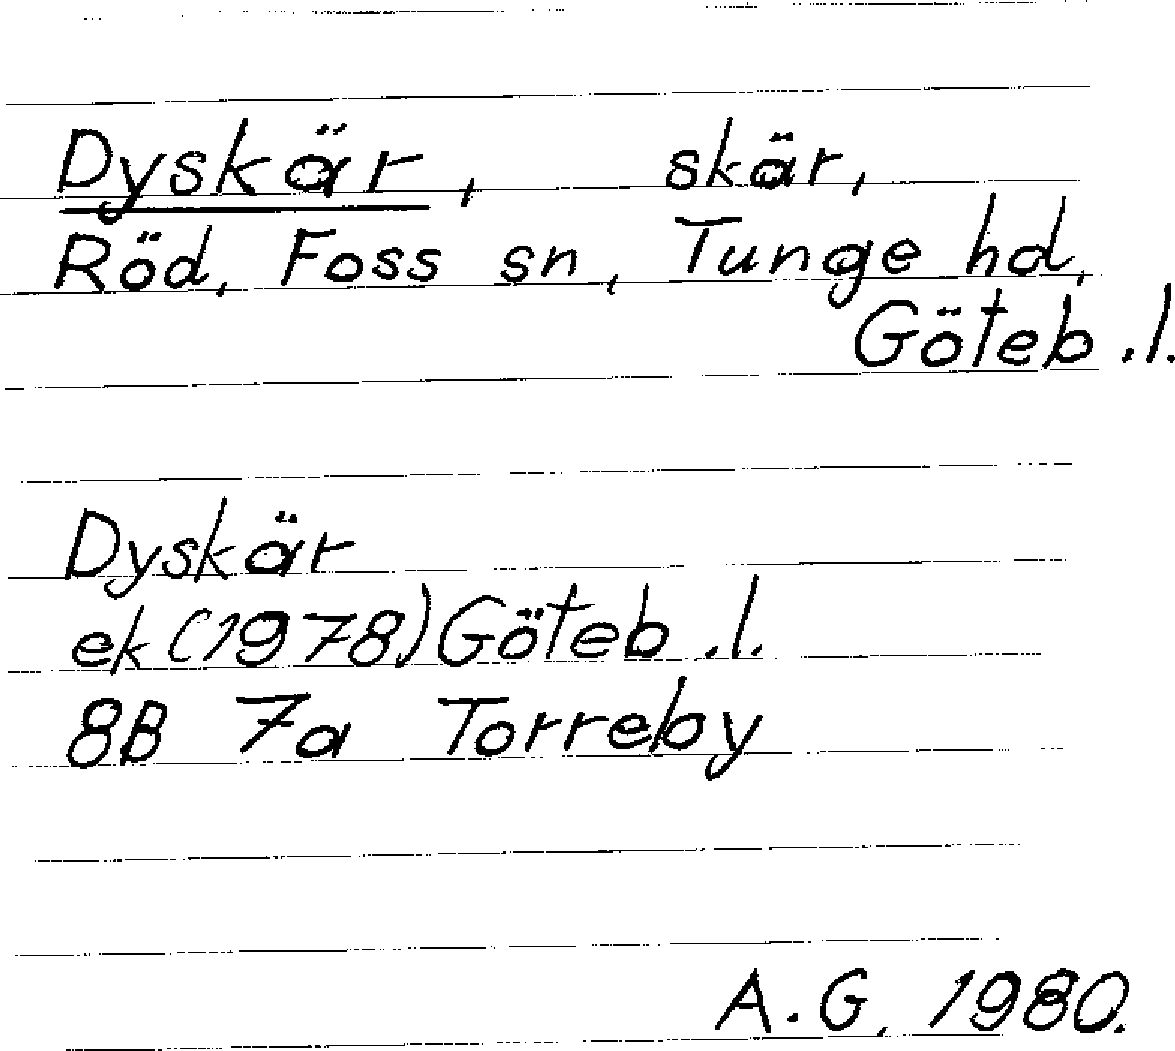 Dyskär, skär,
Röd, Foss sn, Tunge hd,
Göteb.l.
Dyskär
ek (1978) Göteb.l.
8B 7a Torreby
A.G. 1980.